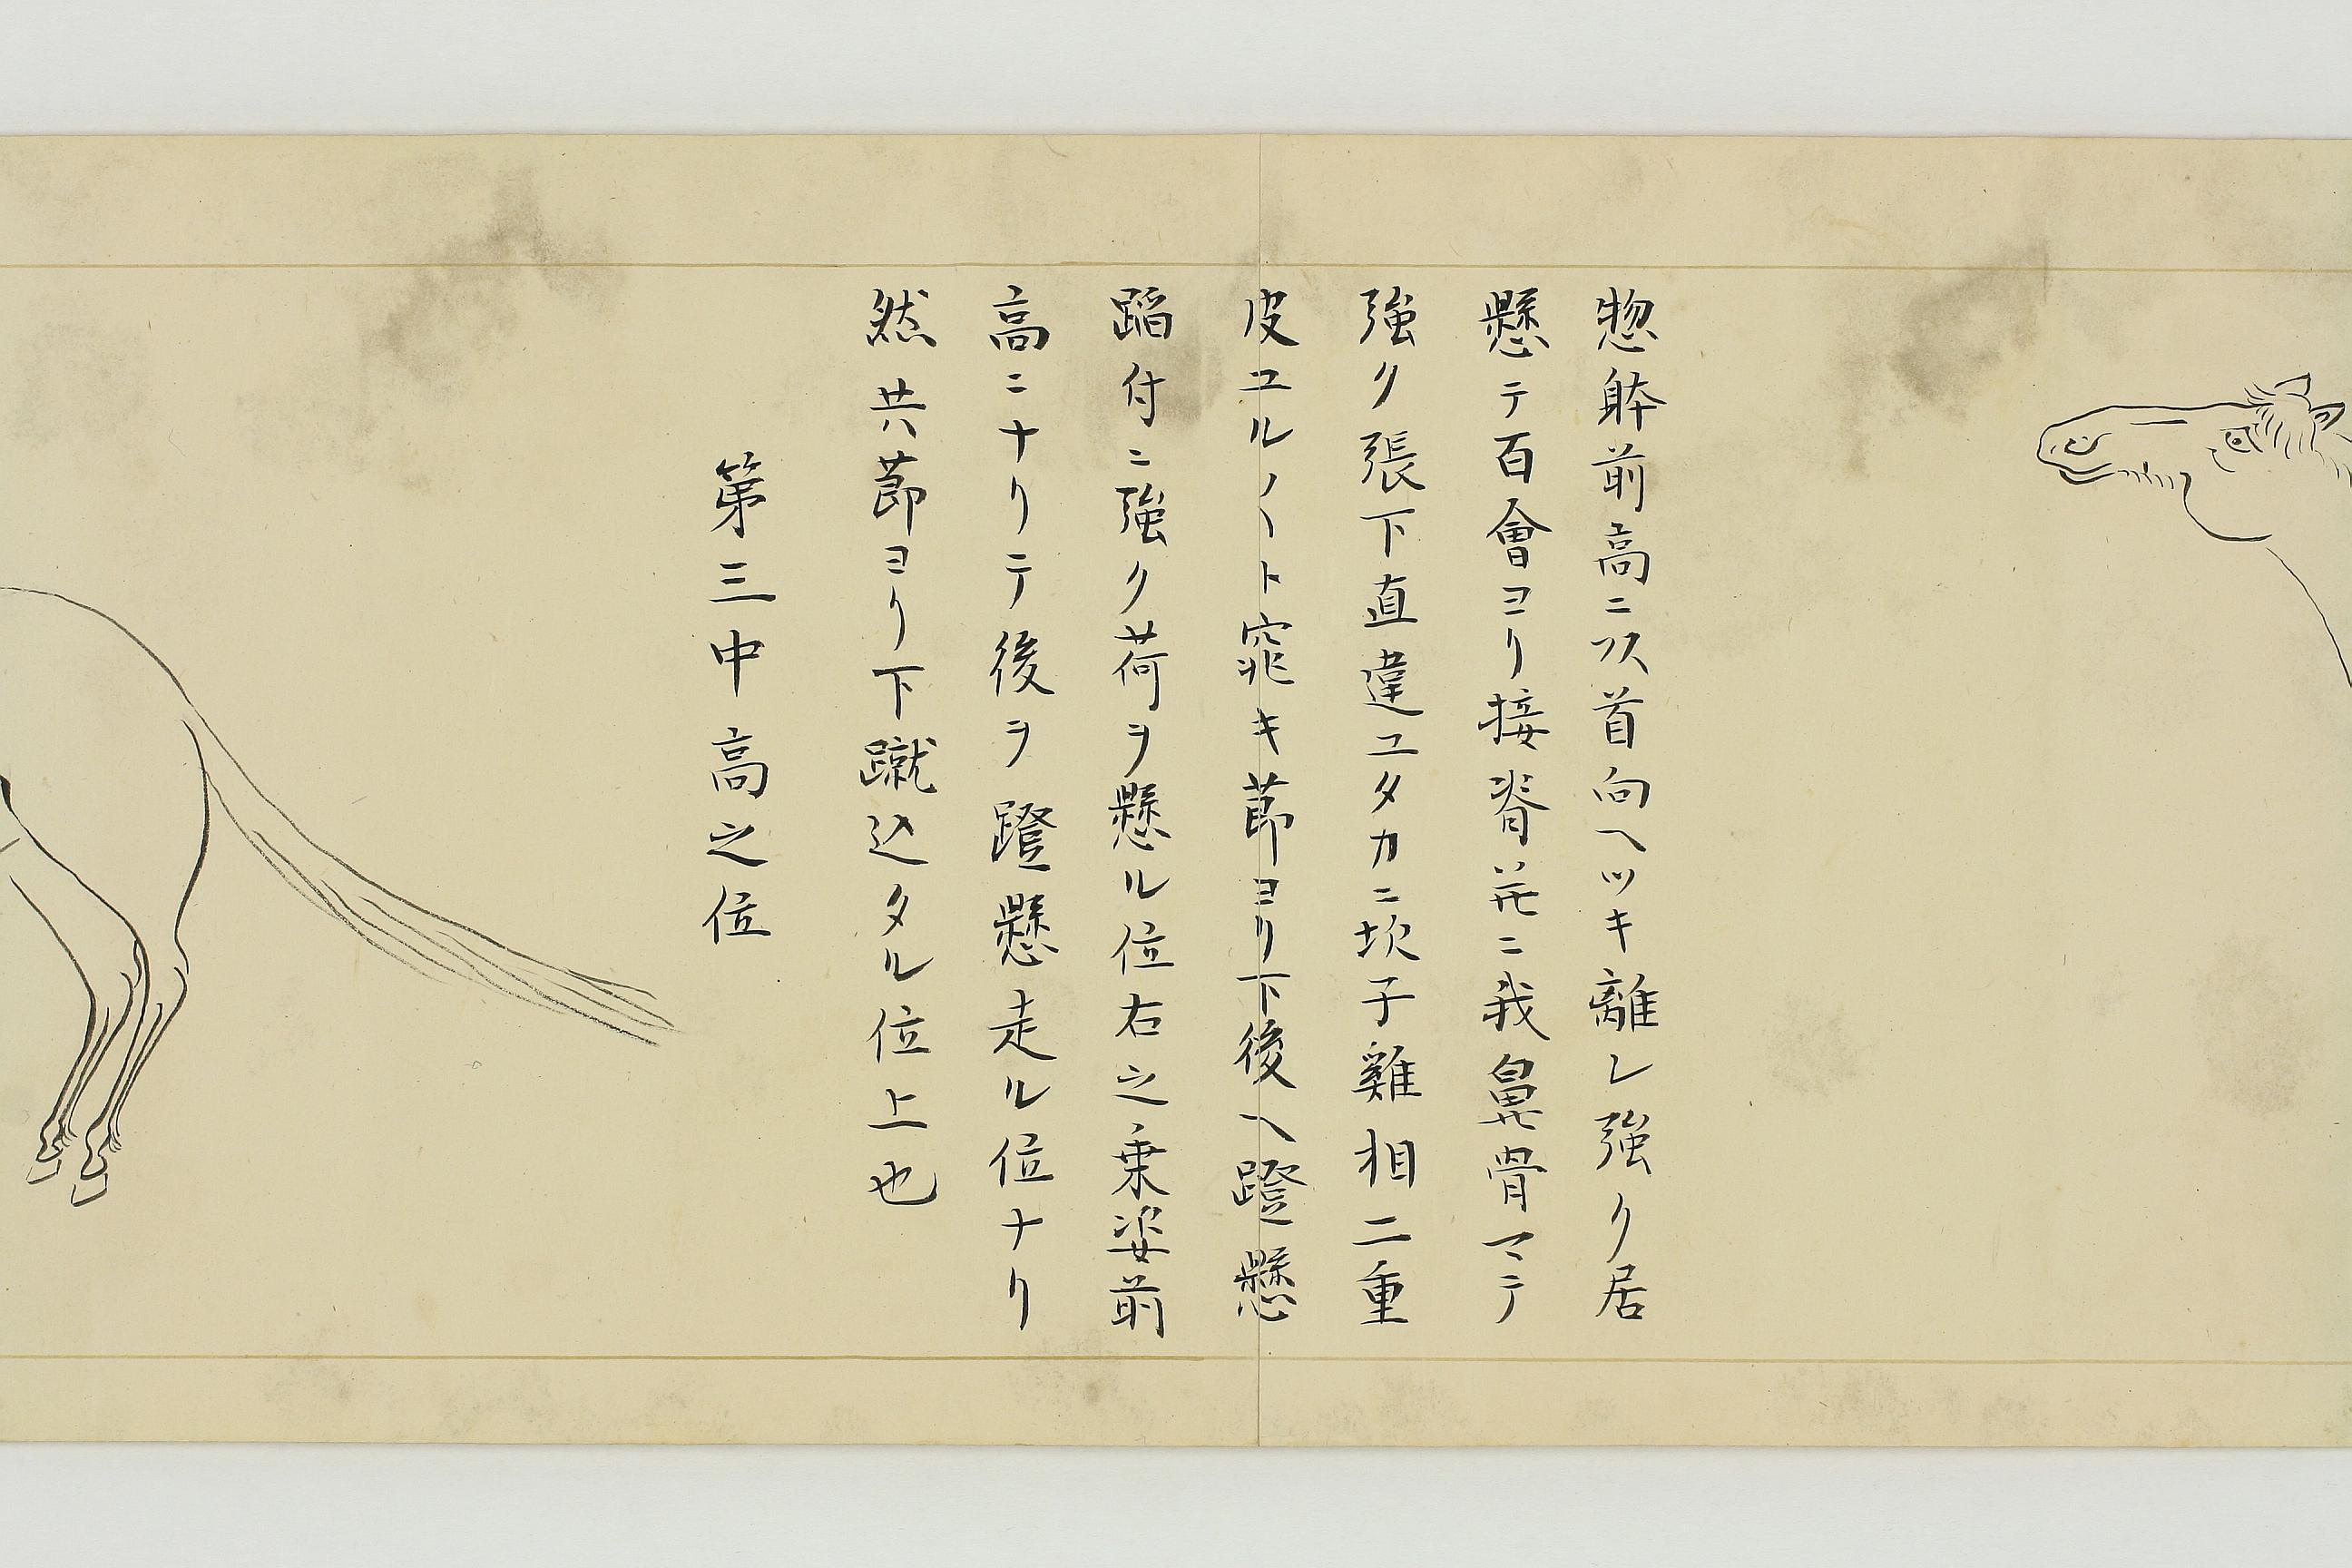 惣躰前高ニ〆首向ヘツキ離レ強ク居
懸テ百會ヨリ接脊並ニ我鼻骨マテ
強ク張下直違ユタカニ坎子雞相二重
皮ユルノ\ト窕キ莭ヨリ下後ヘ蹬懸
蹈付ニ強ク荷ヲ懸ル位右之乗姿前
高ニナリテ後ヲ蹬懸走ル位ナリ
然共莭ヨリ下蹴込タル位上也
第三中高之位